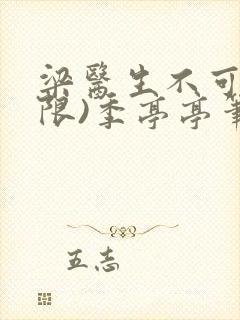 梁醫生不可
限)季亭亭
五志